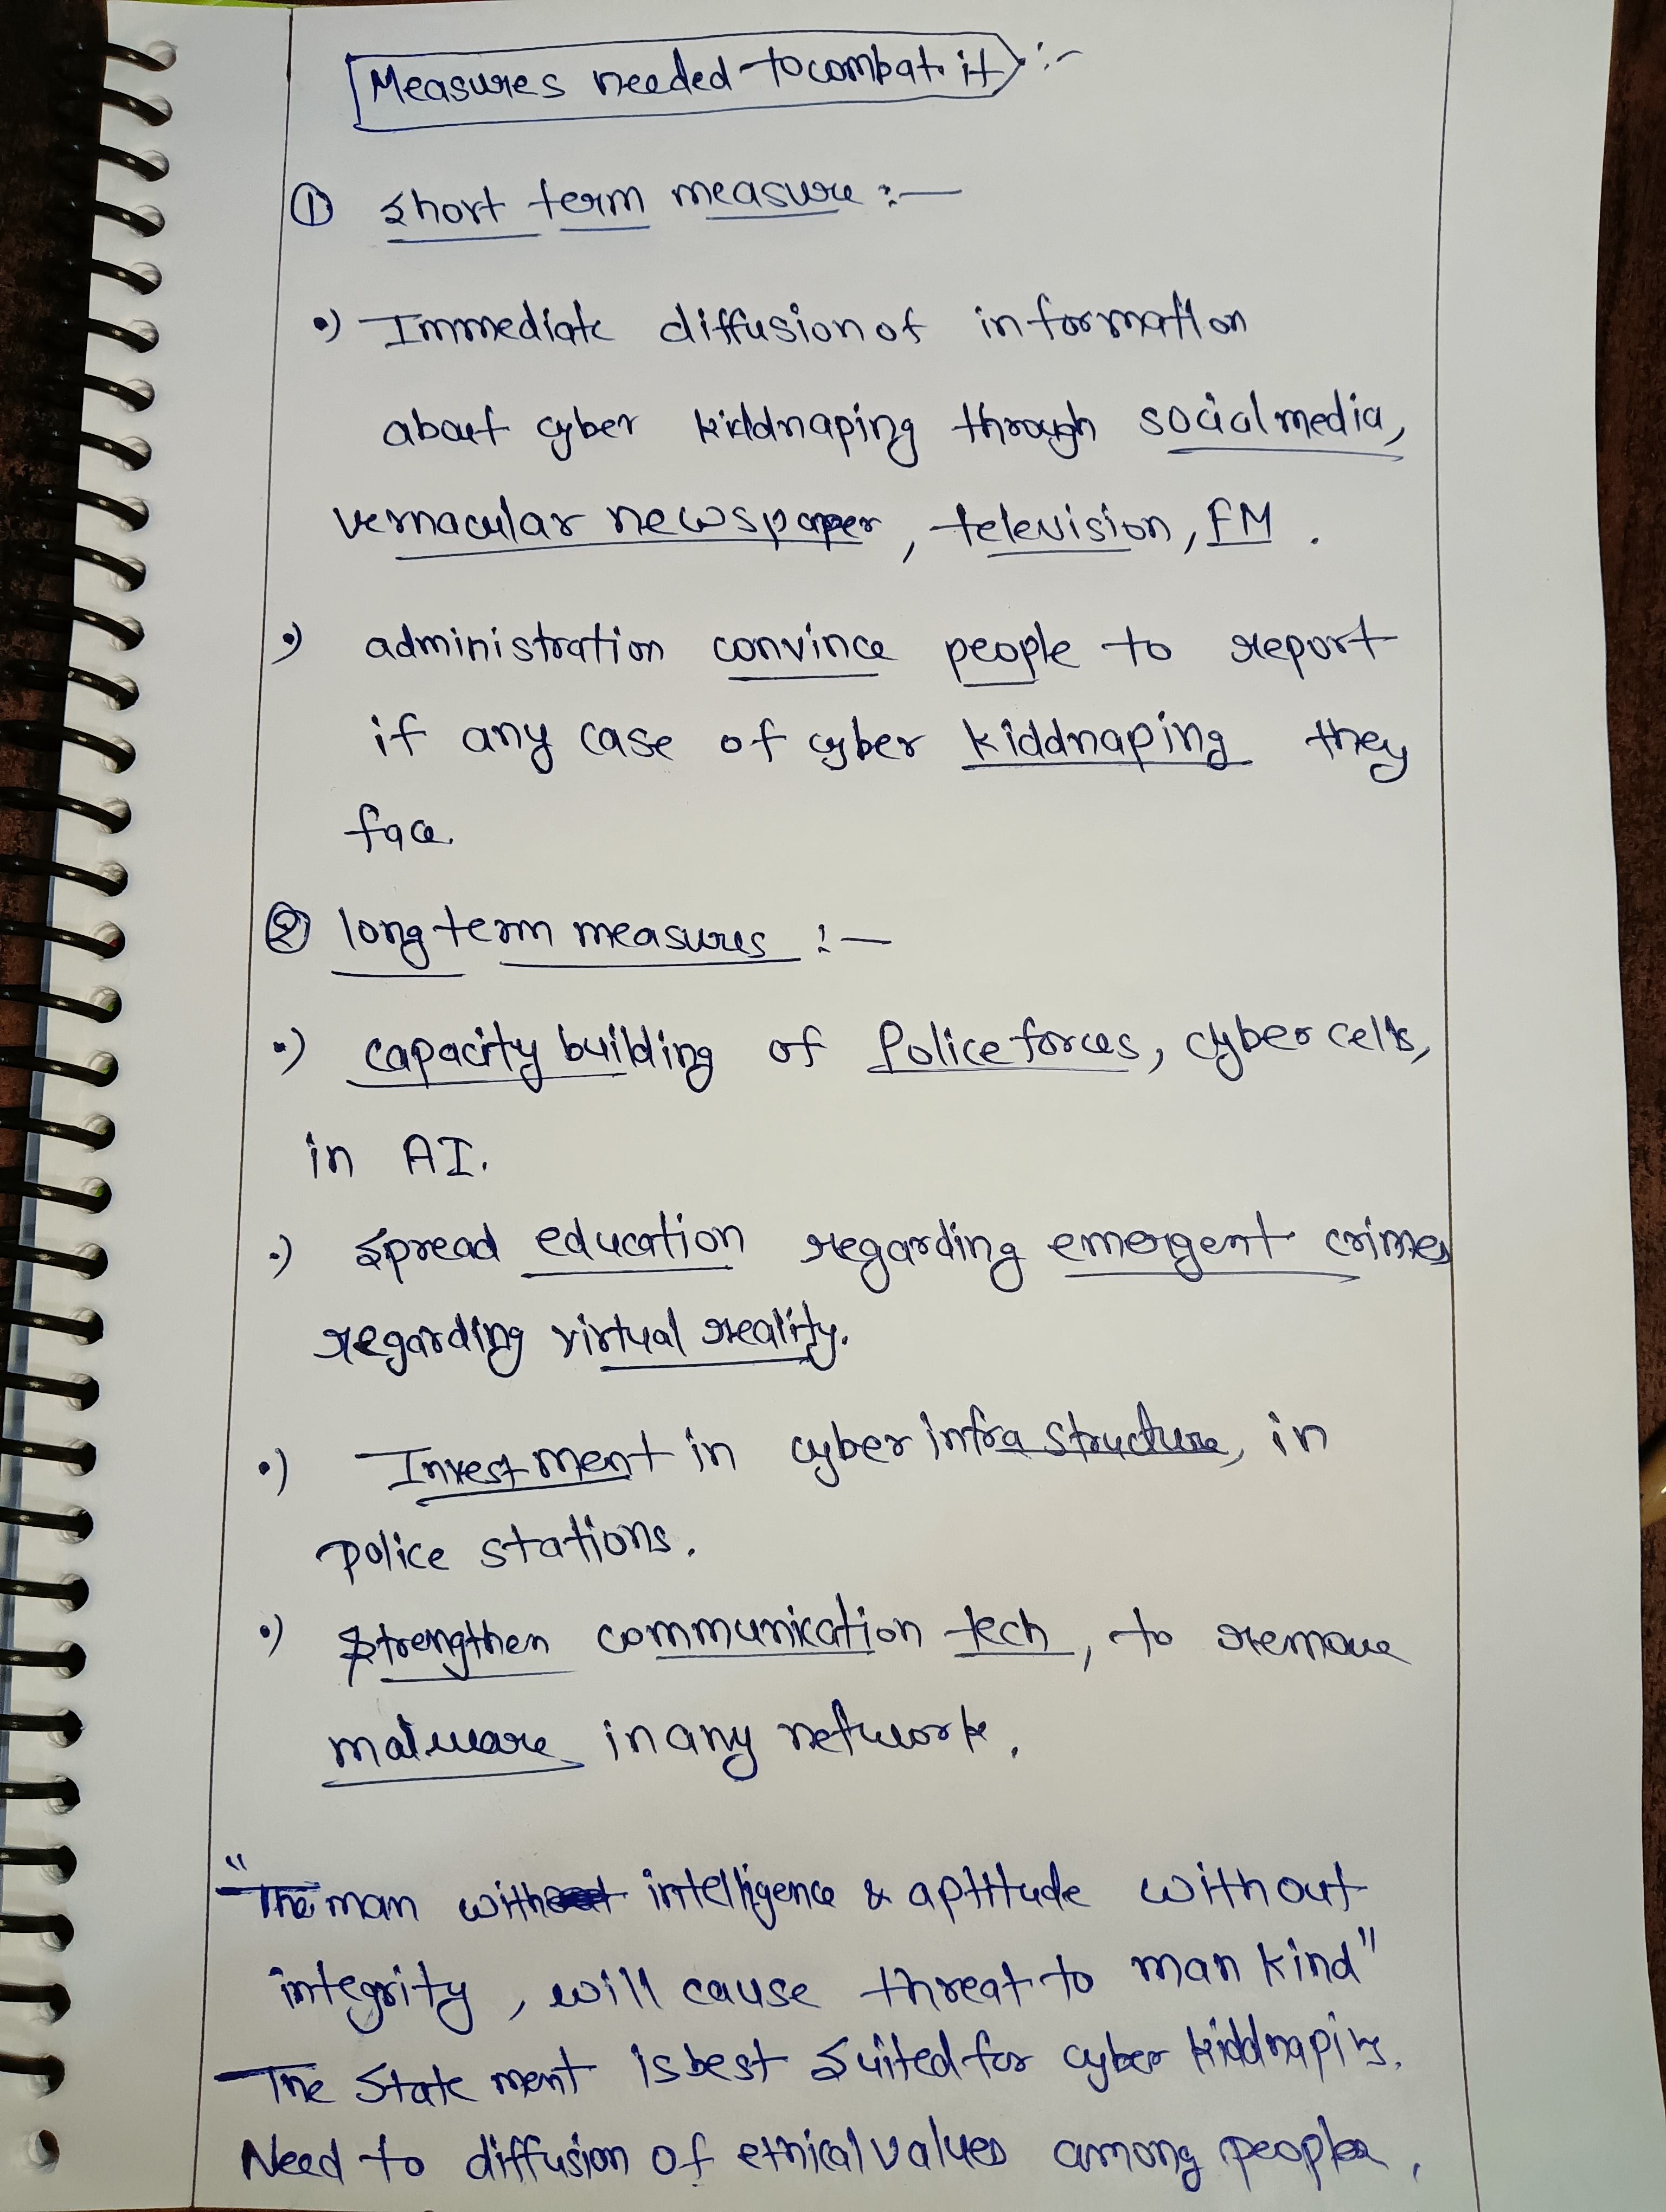 Measures needed to combat it :-
① Short term measure :-
•) Immediate diffusion of information
about cyber kiddnaping through social media,
vernacular newspaper, television, FM.
•) administration convince people to report
if any case of cyber kiddnaping they
face.
② long term measures :-
•) capacity building of Police forces, cyber cells,
in AI.
•) Spread education regarding emergent crimes
regarding virtual reality.
•) Investment in cyber infra structure, in
police stations.
•) Strengthen communication tech, to remove
malware in any network.
"The man with intelligence & aptitude without
integrity, will cause threat to man kind"
The State ment is best suited for cyber kiddnaping.
Need to diffusion of ethical values among people.